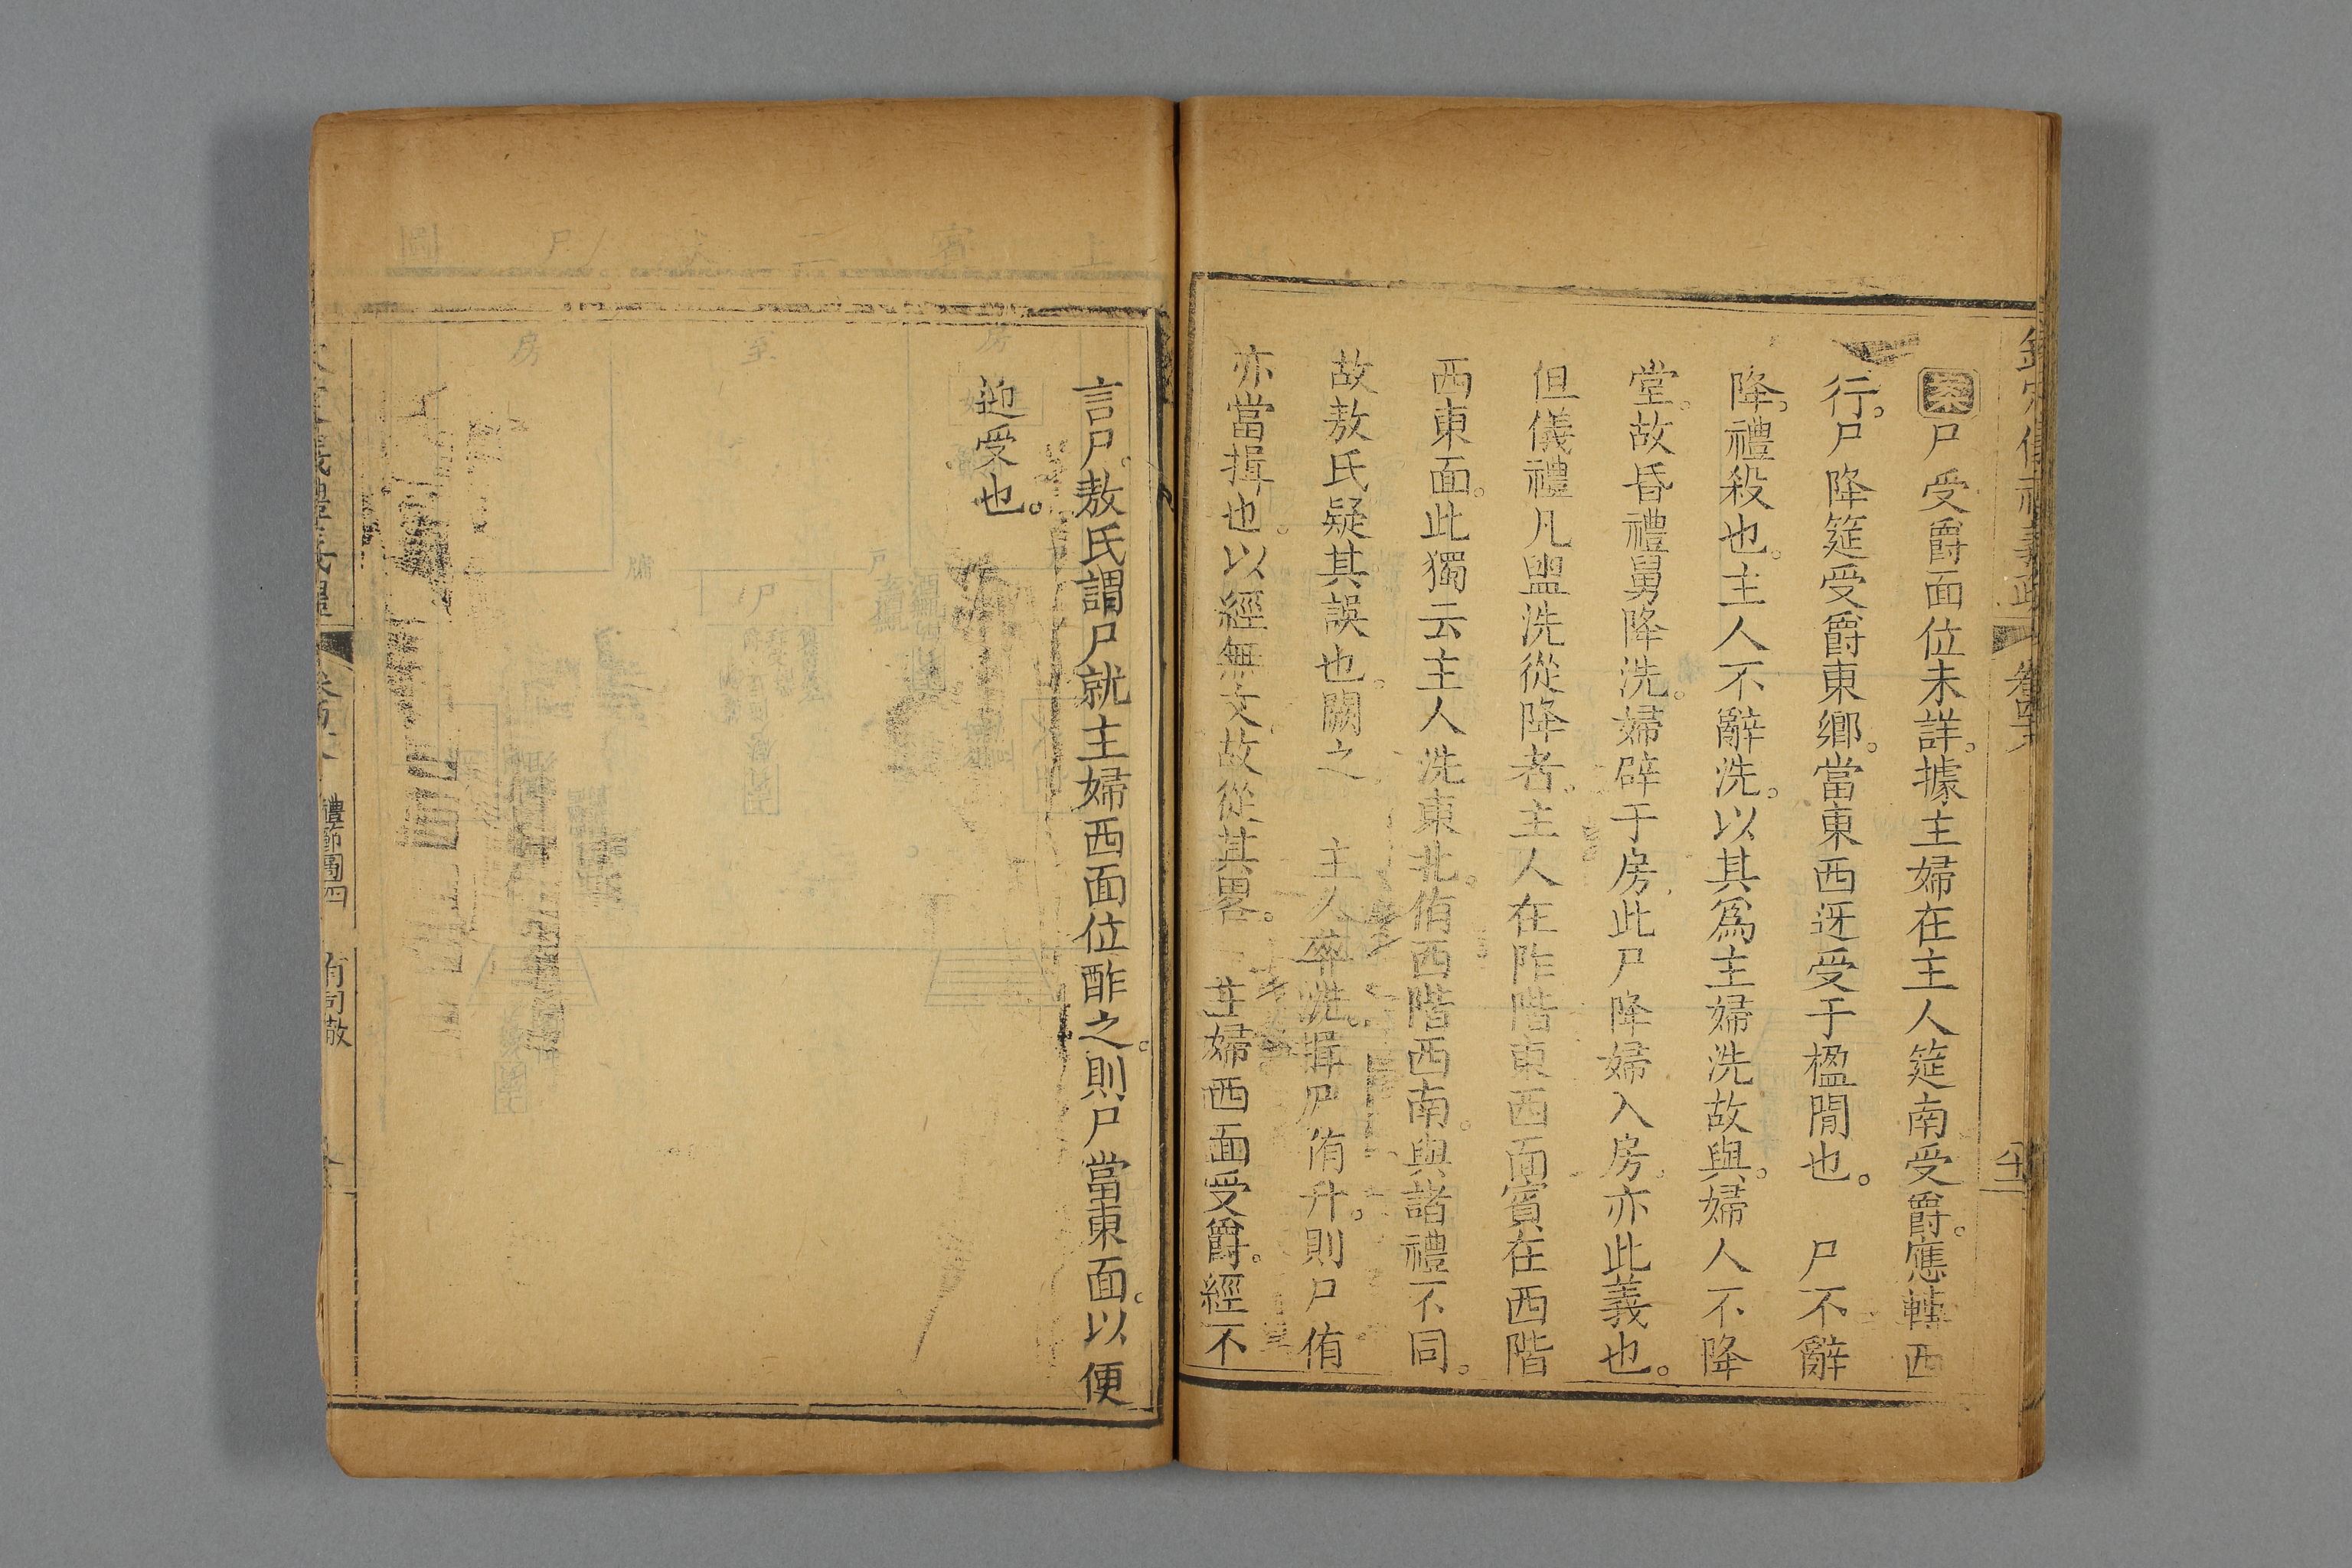 案尸受爵面位未詳。據主婦在主人筵南受爵。應轉西
行。尸降筵受爵東鄉。當東西迓受于楹閒也。 尸不辭
降。禮殺也。主人不辭洗。以其爲主婦洗故與。婦人不降
堂。故昏禮舅降洗。婦辟于房此尸降婦入房亦此義也。
但儀禮凡盥洗從降者。主人在阼階東西面賓在西階
西東面。此獨云主人洗東北。侑西階西南。與諸禮不同。
故敖氏疑其誤也。闕之 主人卒洗。揖尸侑升。則尸侑
亦當揖也。以經無文。故從其畧。 主婦西面受爵。經不
言尸。敖氏謂尸就主婦西面位酢之。則尸當東面。以便
迎受也。
禮節圖四 有司徹